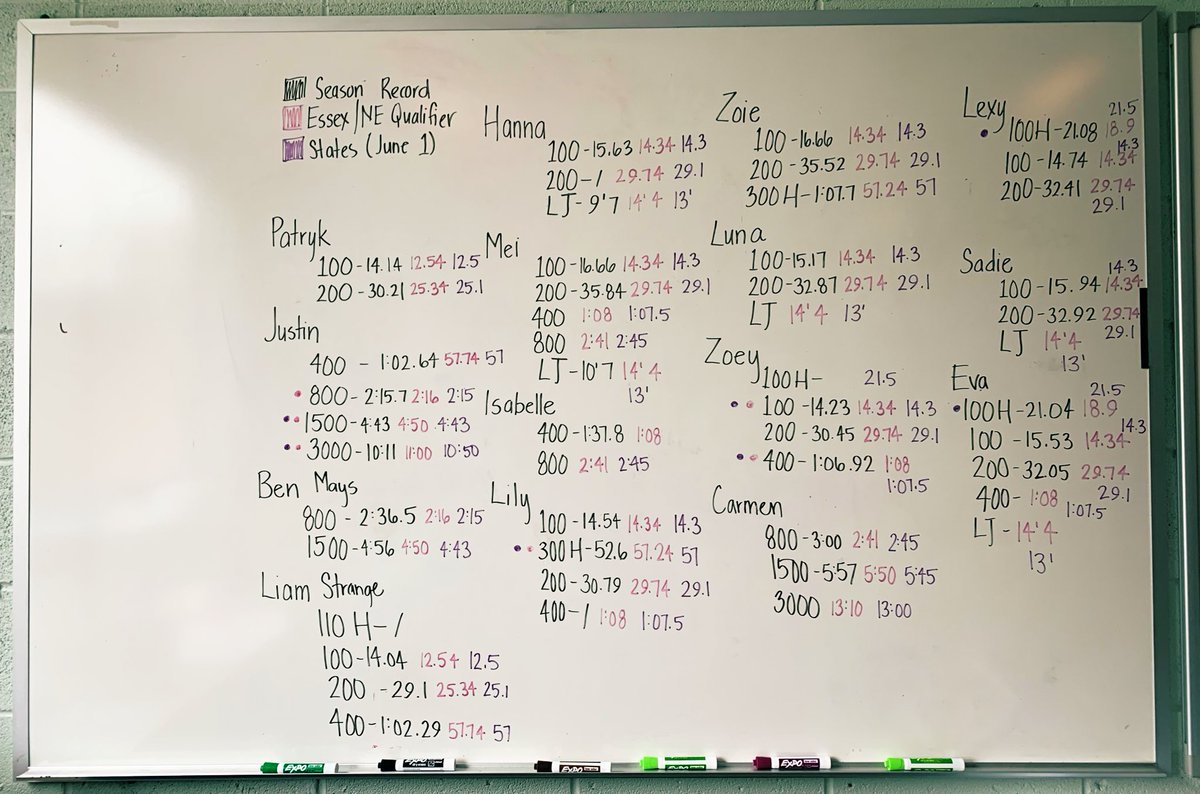 Season Record
Essex/NE Qualifier
States (June 1)
Patryk
100 - 14.14 12.54 12.5
200 - 30.21 25.34 25.1
Justin
400 - 1:02.64 57.74 57
• 800 - 2:15.7 2:16 2:15
•• 1500 - 4:43 4:50 4:43
•• 3000 - 10:11 11:00 10:50
Ben Mays
800 - 2:36.5 2:16 2:15
1500 - 4:56 4:50 4:43
Liam Strange
110 H - /
100 - 14.04 12.54 12.5
200 - 29.1 25.34 25.1
400 - 1:02.29 57.74 57
Hanna
100 - 15.63 14.34 14.3
200 - / 29.74 29.1
LJ - 9'7 14'4 13'
Mei
100 - 16.66 14.34 14.3
200 - 35.84 29.74 29.1
400 1:08 1:07.5
800 2:41 2:45
LJ - 10'7 14'4
13'
Isabelle
400 - 1:37.8 1:08
800 2:41 2:45
Lily
100 - 14.54 14.34 14.3
•• 300 H - 52.6 57.24 57
200 - 30.79 29.74 29.1
400 - / 1:08 1:07.5
Zoie
100 - 16.66 14.34 14.3
200 - 35.52 29.74 29.1
300 H - 1:07.7 57.24 57
Luna
100 - 15.17 14.34 14.3
200 - 32.87 29.74 29.1
LJ 14'4 13'
Zoey
100 H - 21.5
•• 100 - 14.23 14.34 14.3
200 - 30.45 29.74 29.1
•• 400 - 1:06.92 1:08
1:07.5
Carmen
800 - 3:00 2:41 2:45
1500 - 5:57 5:50 5:45
3000 13:10 13:00
Lexy
21.5
• 100H - 21.08 18.9
14.3
100 - 14.74 14.34
200 - 32.41 29.74
29.1
Sadie
14.3
100 - 15.94 14.34
200 - 32.92 29.74
29.1
LJ 14'4
13'
Eva
21.5
• 100H - 21.04 18.9
14.3
100 - 15.53 14.34
200 - 32.05 29.74
29.1
400 - 1:08
1:07.5
LJ - 14'4
13'
EXPO
EXPO
EXPO
EXPO